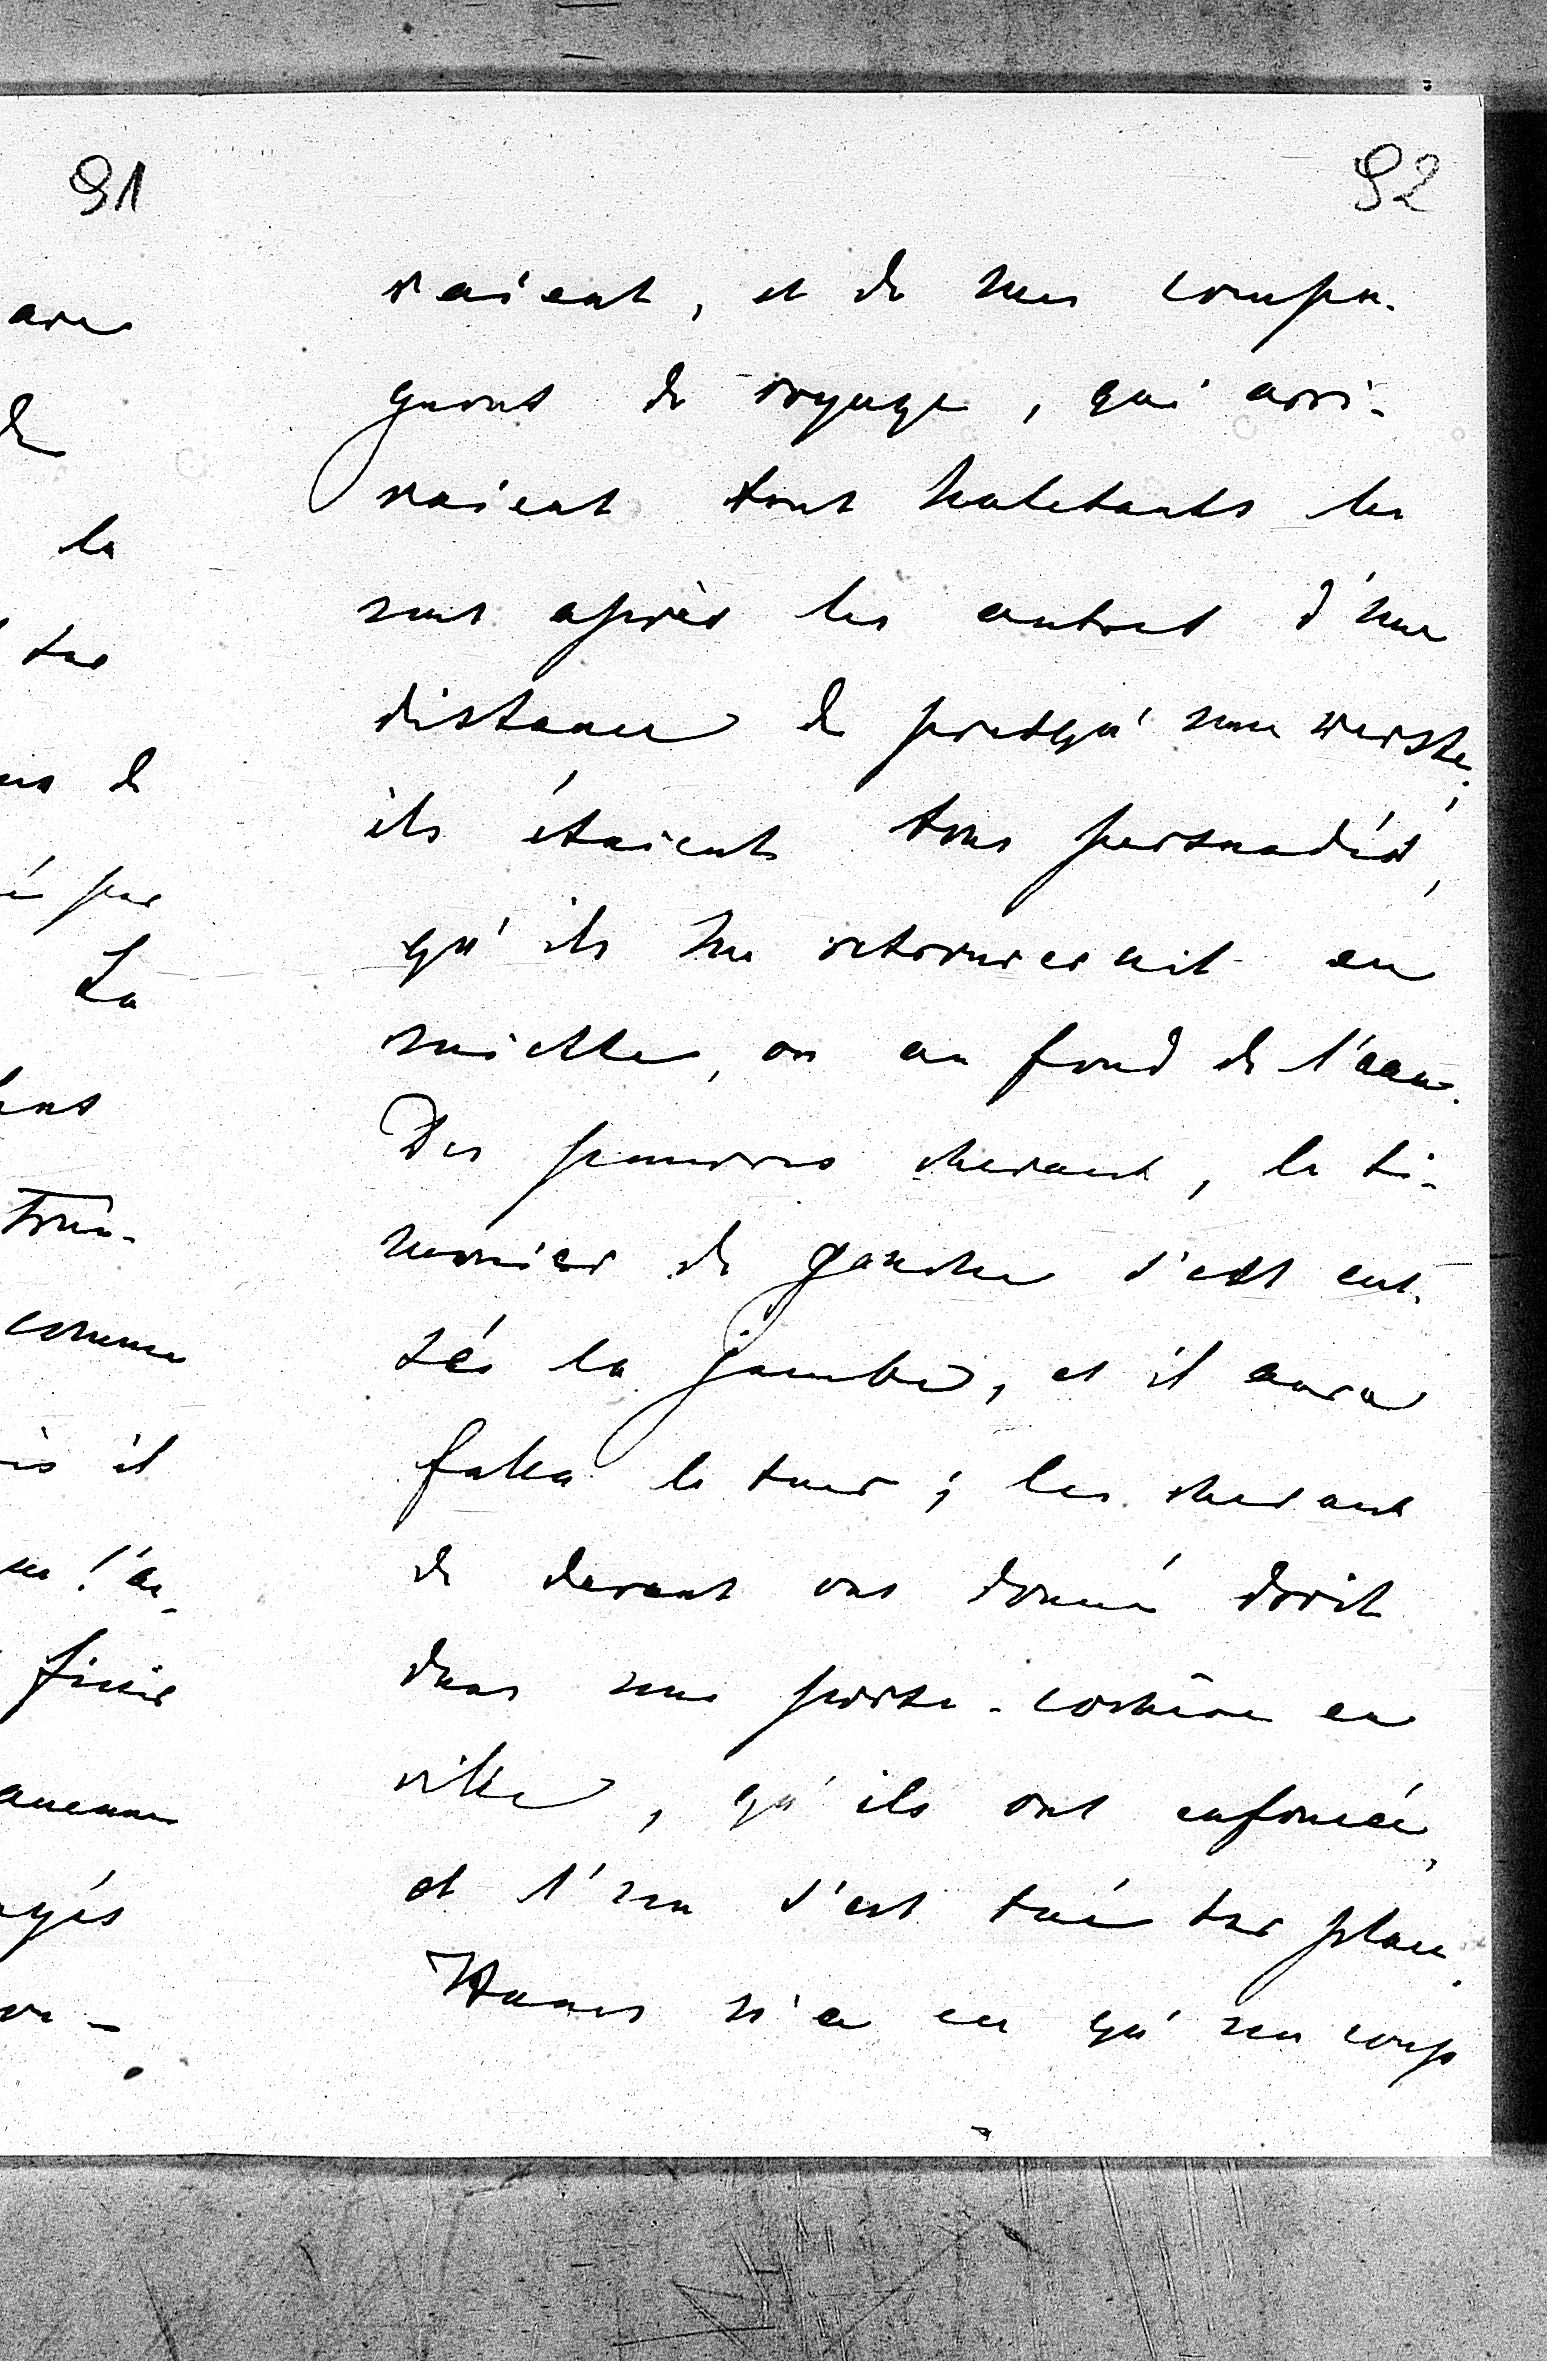 91
ave
de
la
sur
us de
é par
La
ens
Trou-
comme
is il
finie
gés
or-
92
vaient, et de mes compa-
gnons de voyage, qui arri-
vaient tout haletants les
uns après les autres d'une
distance de presqu'une werste;
ils étaient tous persuadés,
qu'ils me retrouverait en
miettes, ou au fond de l'eau.
Des pauvres chevaux, le ti-
monier de gauche s'est cas-
sés la jambe, et il aura
fallu le tuer; les chevaux
de devant ont donné droit
dans une porte-cochère en
ville, qu'ils ont enfoncée,
et l'un s'est tué sur place.
n'a eu qu'un coup